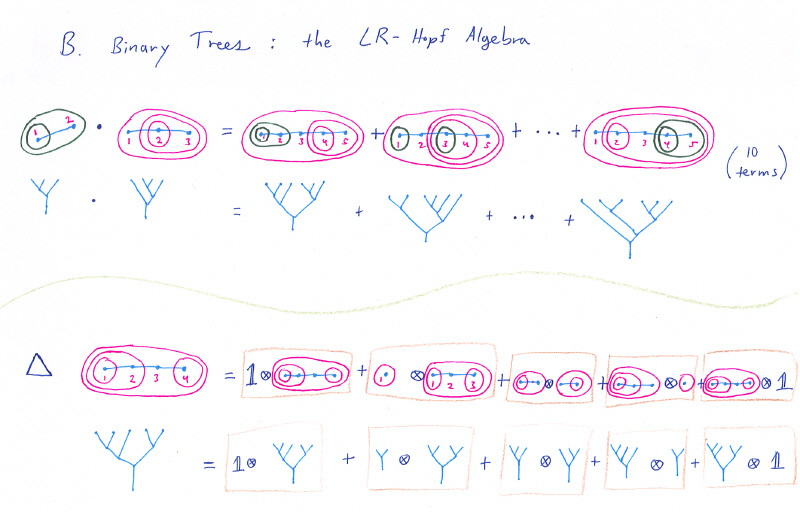 B. Binary Trees : the LR-Hopf Algebra
1 2 · 1 2 3 = 1 2 3 4 5 + 1 2 3 4 5 + ... + 1 2 3 4 5 (10 terms)
· = + + ... +
Δ 1 2 3 4 = 1 ⊗ + 1 ⊗ 1 2 3 + ⊗ + ⊗ + ⊗ 1
= 1 ⊗ + ⊗ + ⊗ + ⊗ + ⊗ 1